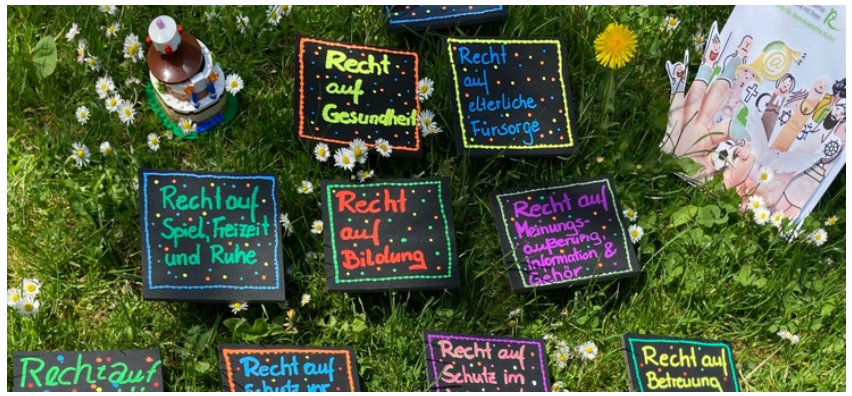 Recht
auf
Gesundheit
Recht
auf
elterliche
Fürsorge
Recht auf
Spiel, Freizeit
und Ruhe
Recht
auf
Bildung
Recht auf
Meinungs-
äußerung,
information &
Gehör
Recht auf
Recht auf
Schutz vor
Recht auf
Schutz im
Recht auf
Betreuung